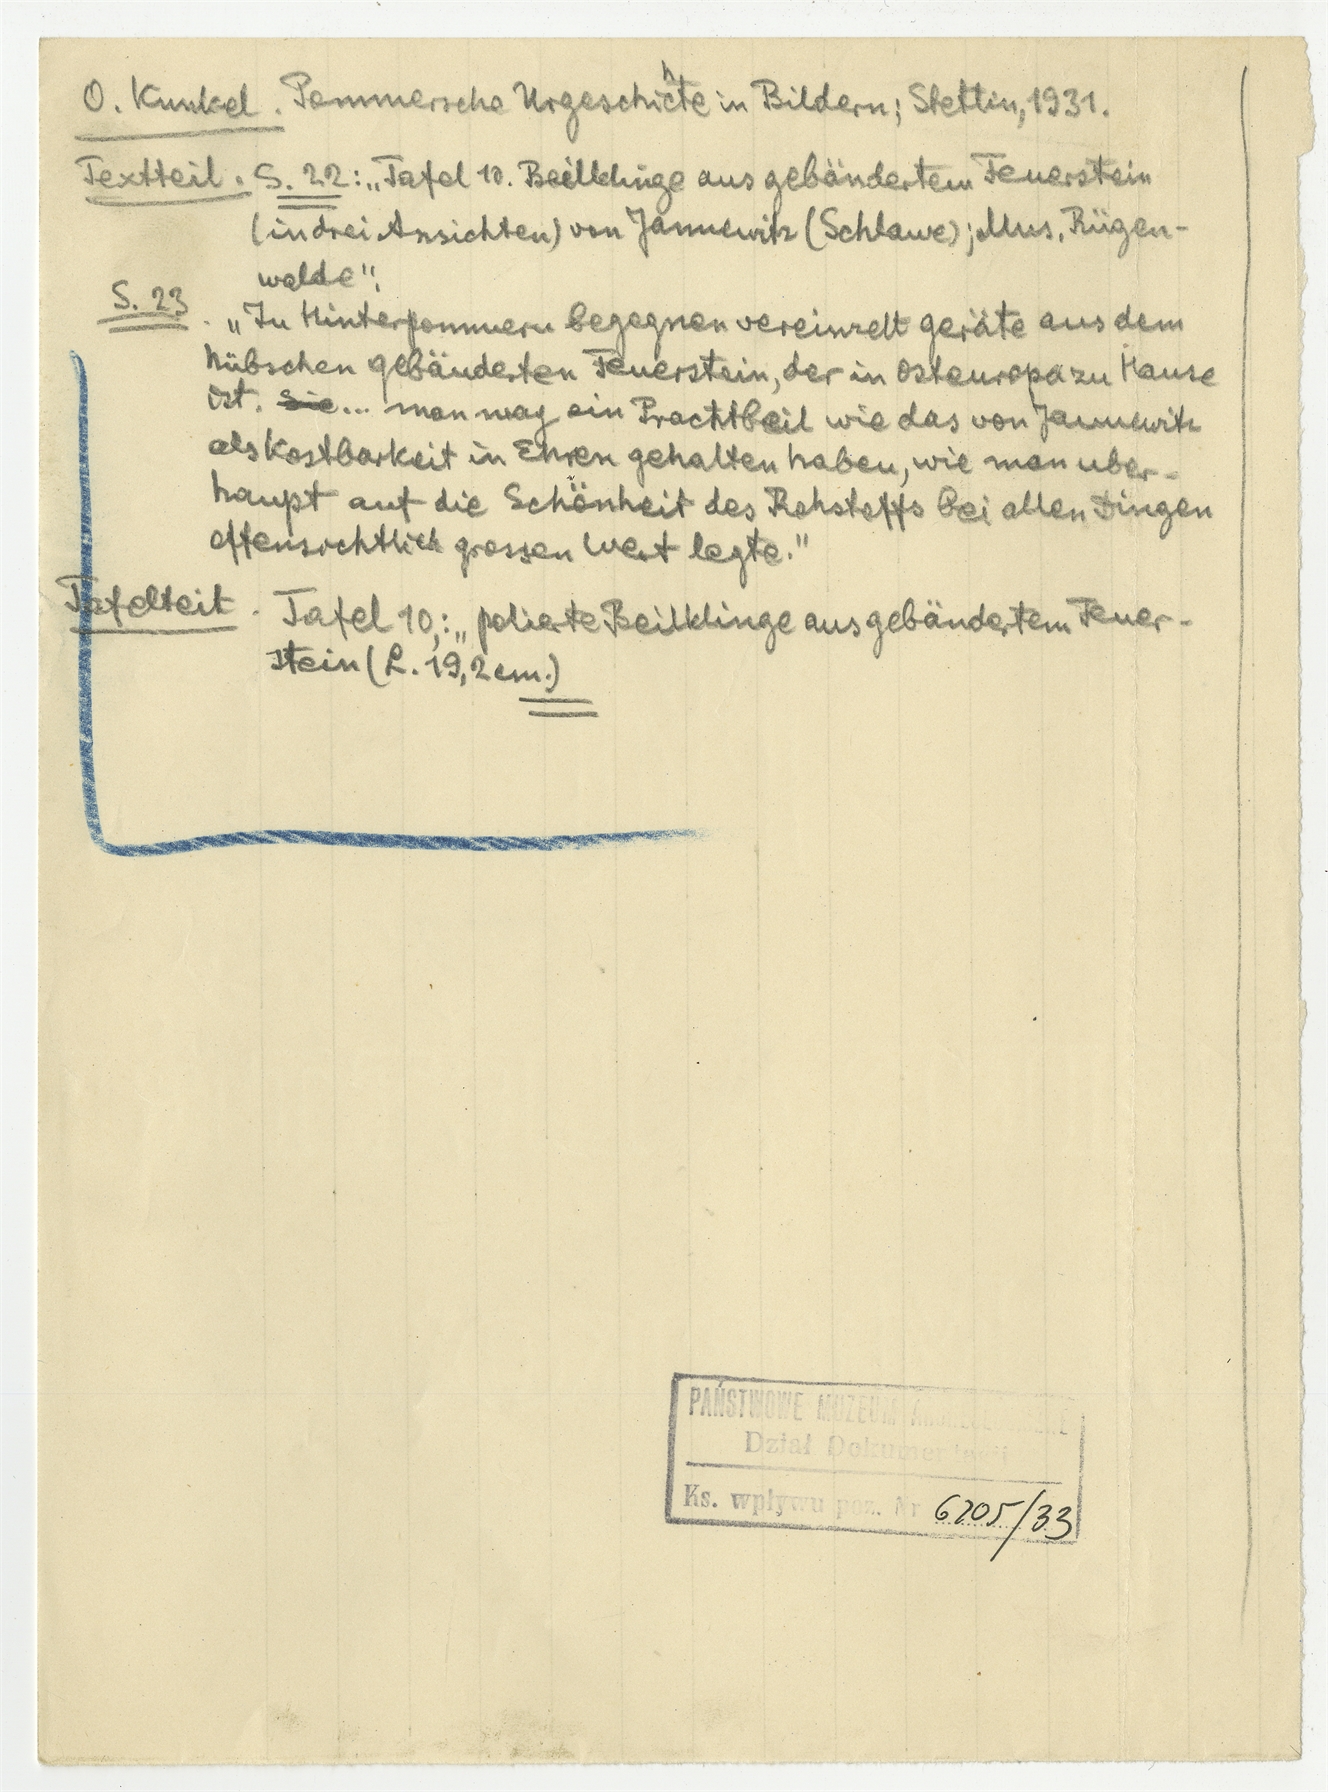 O. Kunkel. Pommersche Urgeschichte in Bildern; Stettin, 1931.
Textteil. S. 22: „Tafel 10. Beilklinge aus gebändertem Feuerstein
(in drei Ansichten) von Jannewitz (Schlawe); Mus. Rügen-
walde";
S. 23. „In Hinterpommern begegnen vereinzelt geräte aus dem
hübschen gebänderten Feuerstein, der in Osteuropa zu Hause
ist. Sie... man mag ein Prachtbeil wie das von Jannewitz
als Kostbarkeit in Ehren gehalten haben, wie man uber-
haupt auf die Schönheit des Rohstoffs bei allen Dingen
offensichtlich grossen Wert legte."
Tafelteil. Tafel 10,: „polierte Beilklinge aus gebändertem Feuer-
stein (L. 19,2 cm.)
PAŃSTWOWE MUZEUM ARCHEOLOGICZNE
Dział Dokumentacji
Ks. wpływu poz. Nr 6205/33